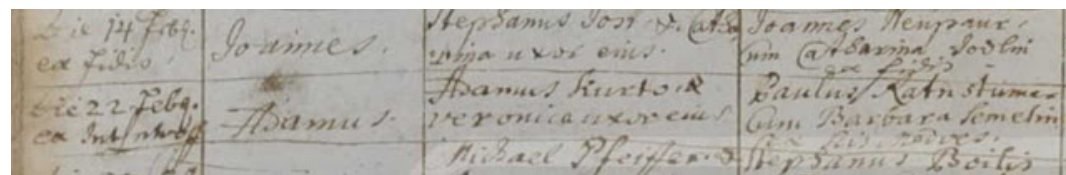 Die 14 Feb.
ex fidis.
Joannes.
Stephanus Jost & Catha
rina uxor eius.
Joannes Neupaur.
cum Catharina Jodlin
ex fidis
Die 22 Feb.
ex
Adamus.
Adamus Kurtz &
veronica uxor eius
Paulus
cum Barbara Semelin
Michael Pfeiffer. &
Stephanus Boilis